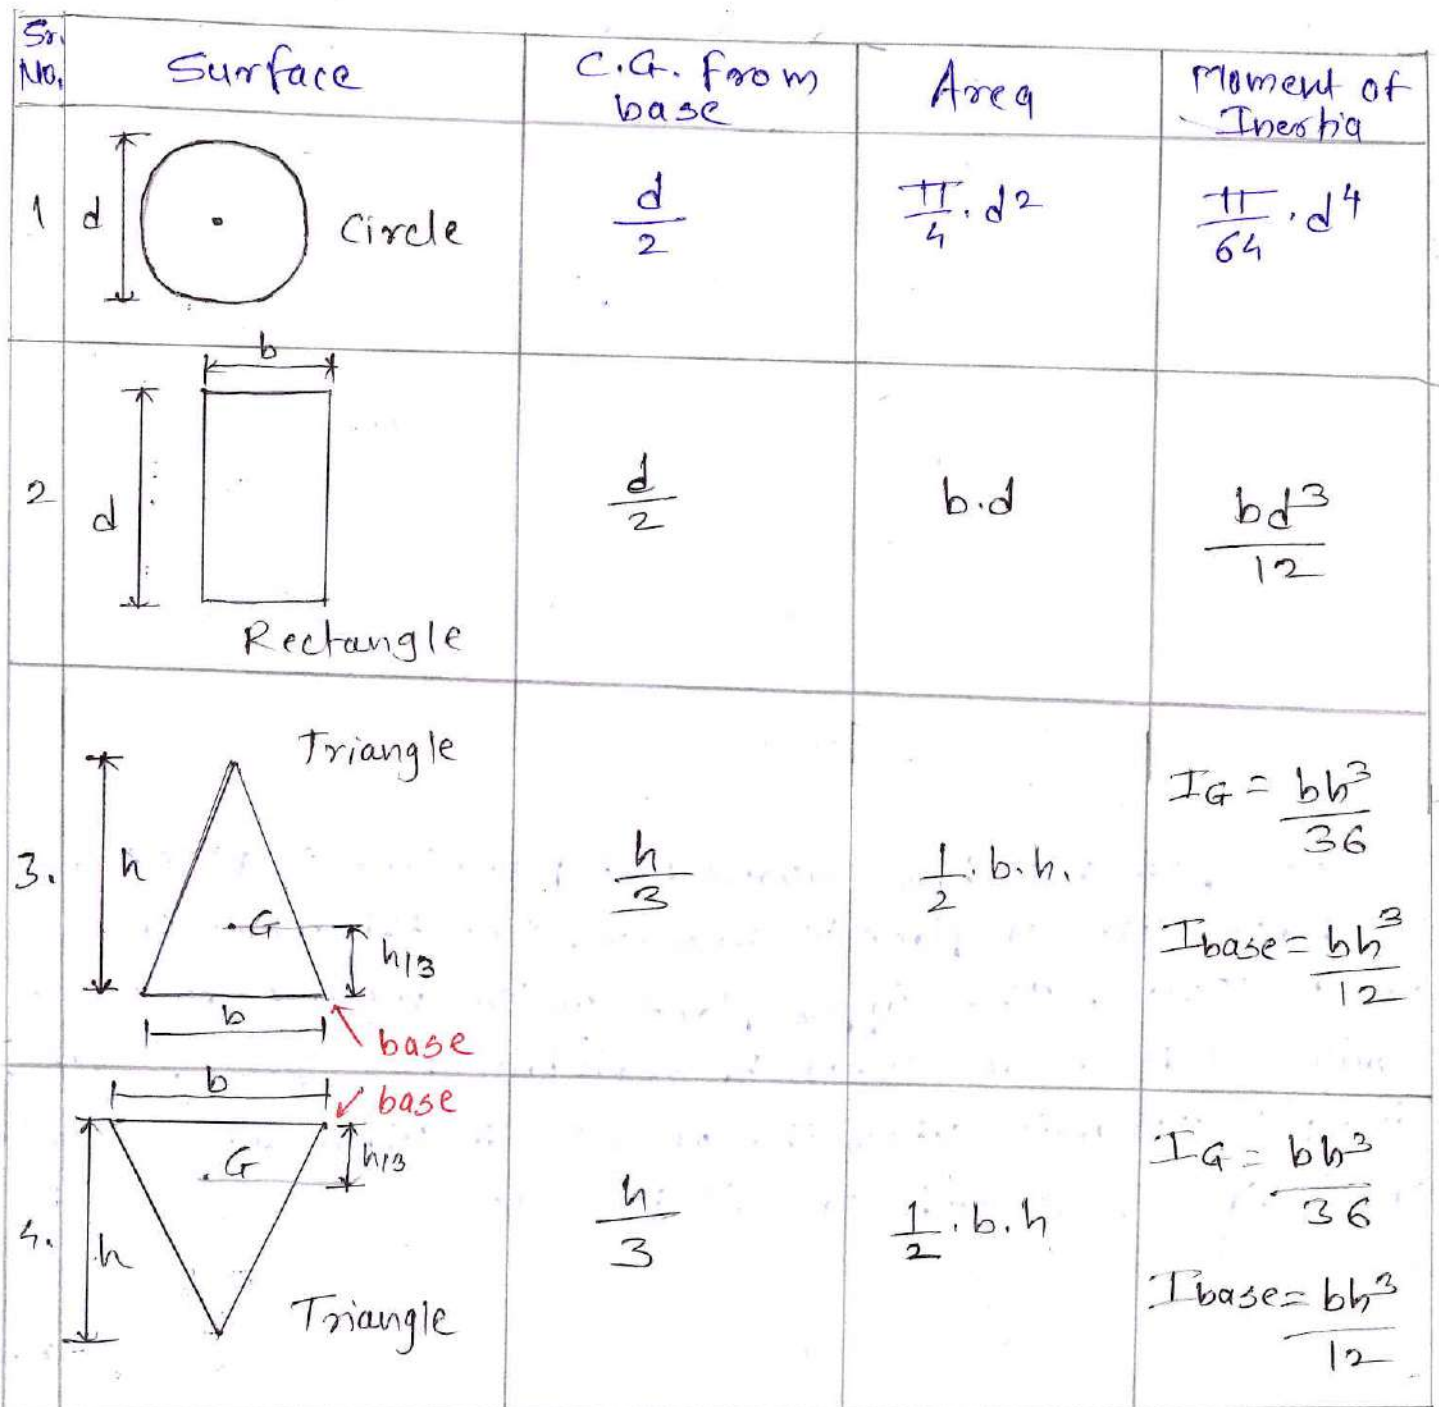 Sr. No.
Surface
C.G. from base
Area
Moment of Inertia
1
d
Circle
d/2
π/4 . d²
π/64 . d⁴
2
b
d
Rectangle
d/2
b.d
bd³/12
3.
Triangle
h
G
h/3
b
base
h/3
1/2 . b.h.
IG = bh³/36
Ibase = bh³/12
4.
b
base
h
G
h/3
Triangle
h/3
1/2 . b.h
IG = bh³/36
Ibase = bh³/12